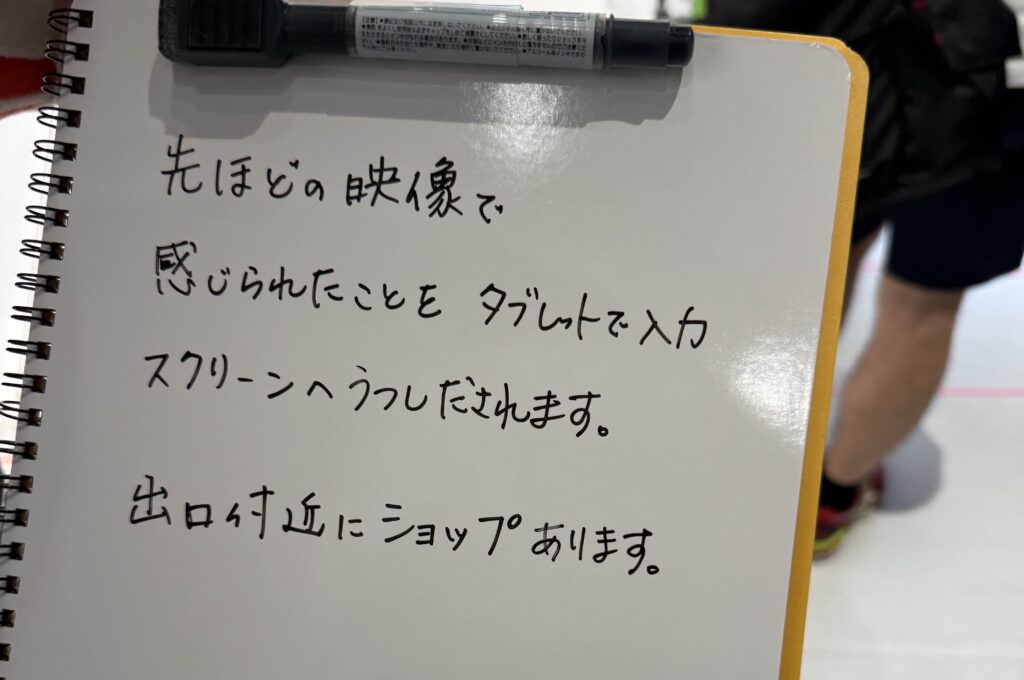 先ほどの映像で
感じられたことを タブレットで入力
スクリーンへうつしだされます。
出口付近にショップあります。